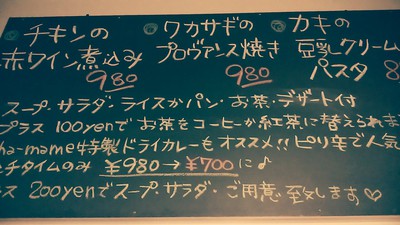 チキンの
赤ワイン煮込み
980
ワカサギの
プロヴァンス焼き
980
カキの
豆乳クリーム
パスタ 8
スープ・サラダ・ライスかパン・お茶・デザート付
プラス 100yenで お茶をコーヒーか紅茶に替えられま
ha-mame特製ドライカレーもオススメ!! ピリ辛で人気
チタイムのみ ¥980→¥700に♪
ス 200yenでスープ・サラダ・ご用意致します♡